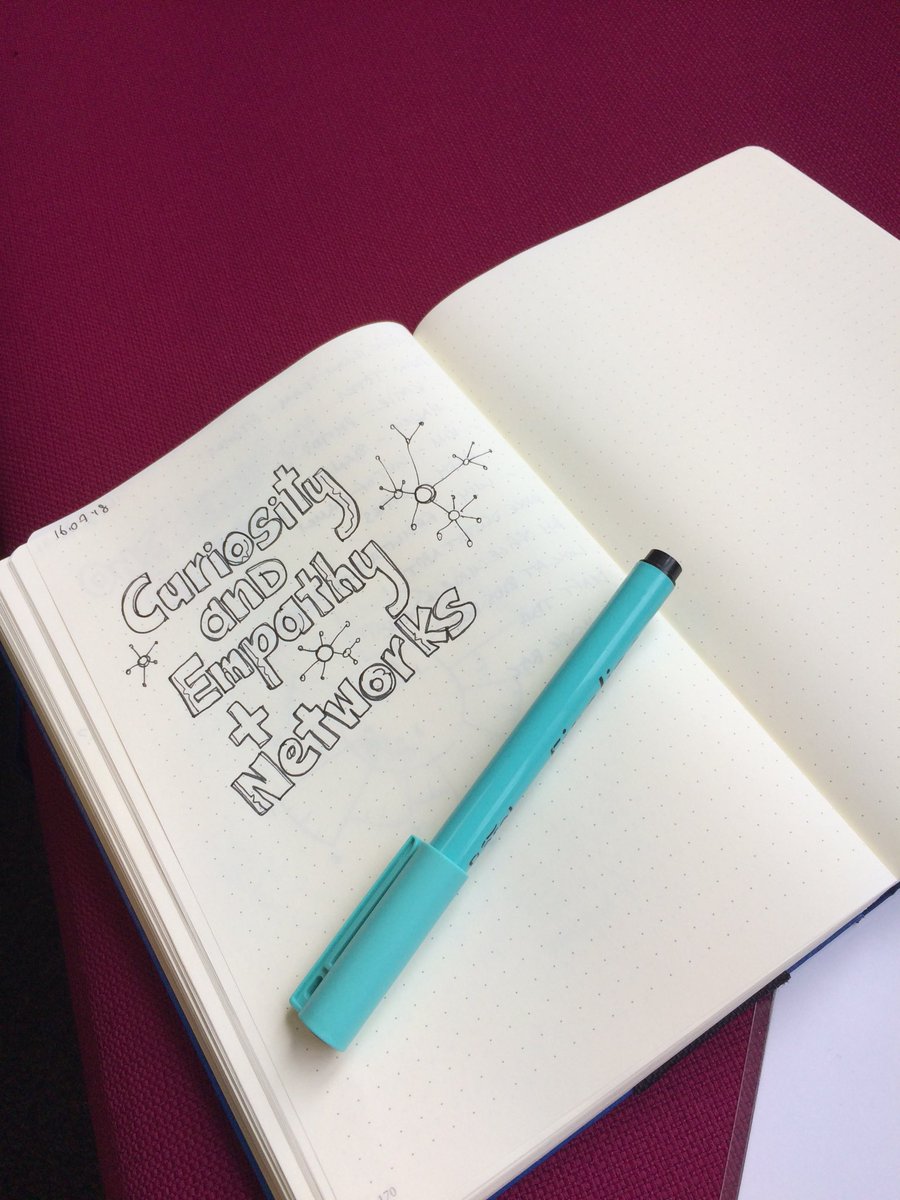 16.07.18
Curiosity
and
Empathy
+
Networks
170